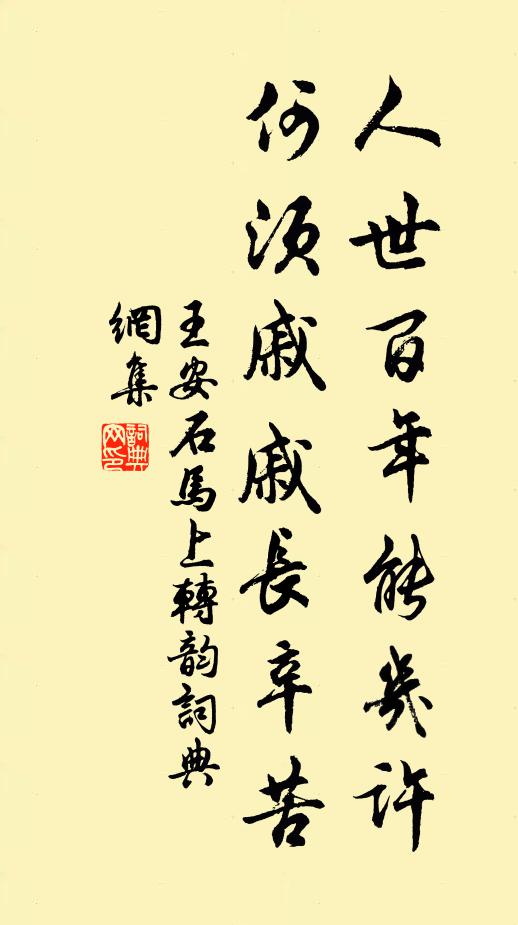 人世百年能幾許
何須戚戚長辛苦
王安石馬上轉韵詞典
網集
詞典網印